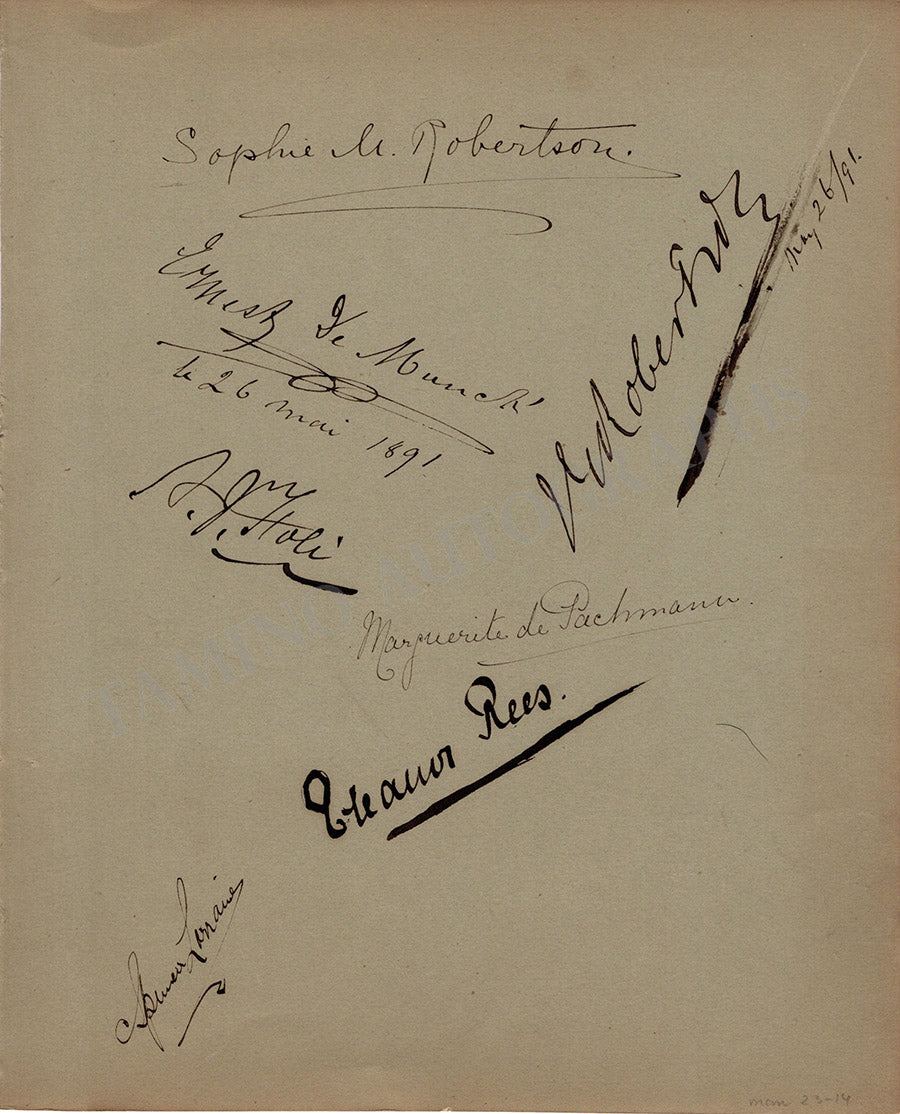 Sophie M. Robertson.
May 26/91.
Ernest De Munck
le 26 mai 1891
Robert
Marguerite de Pachmann.
Eleanor Rees.
Spencer Lorraine
TAMINO AUTOGRAPHS
mam 23-14